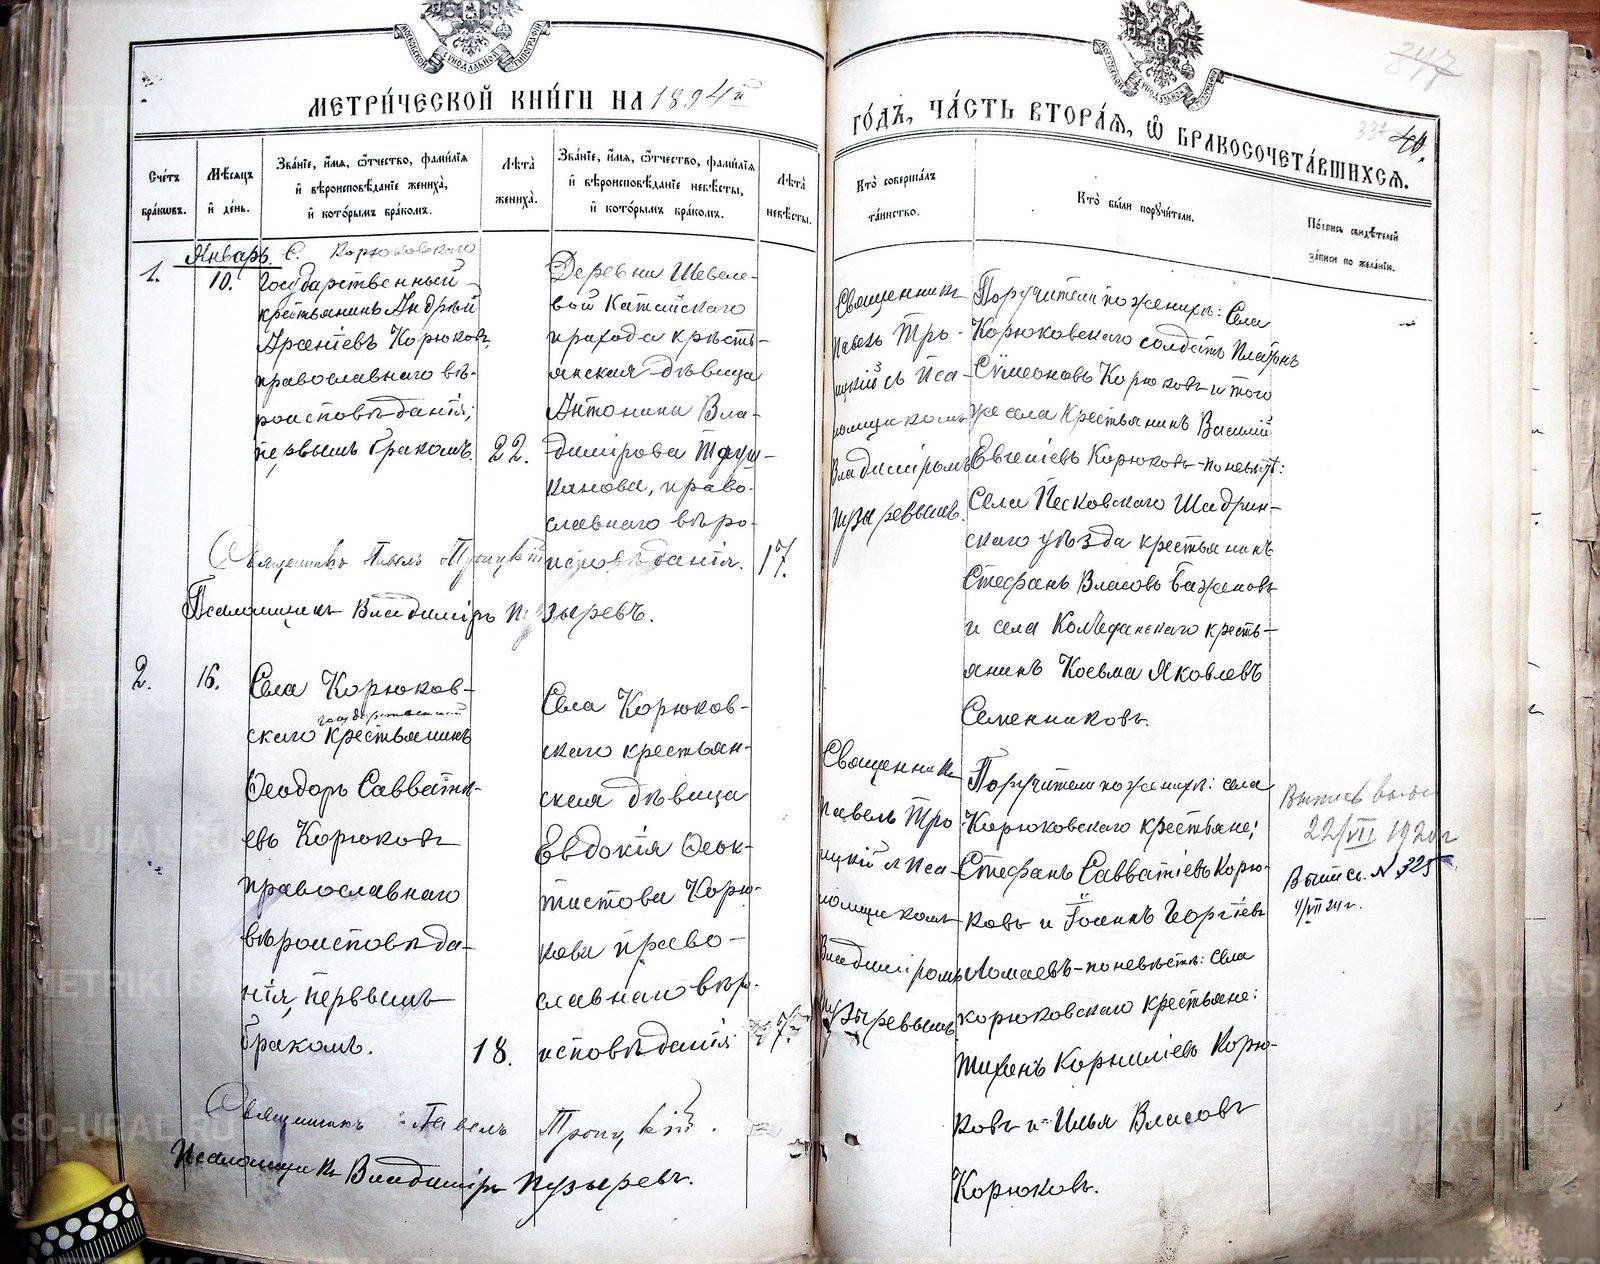 МЕТРИ́ЧЕСКОЙ КНИ́ГИ НА 1894й
ГО́ДЪ, ЧА́СТЬ ВТОРА́Я, Ѡ БРАКОСОЧЕТА́ВШИХСЯ.
347
337
Сче́тъ бра́кѡвъ.
Мѣ́сяцъ и҆ де́нь.
Зва́нїе, и҆́мя, ѻ҆́тчество, фами́лїя и҆ вѣроисповѣ́данїе жениха̀, и҆ кото́рымъ бра́комъ.
Лѣ́та жениха̀.
Зва́нїе, и҆́мя, ѻ҆́тчество, фами́лїя и҆ вѣроисповѣ́данїе невѣ́сты, и҆ кото́рымъ бра́комъ.
Лѣ́та невѣ́сты.
Кто̀ соверша́лъ та́инство.
Кто̀ бы́ли поручи́тели.
По́дпись свидѣ́телей за́писи по жела́нїю.
Январь. С. Корюковскаго
1.
10.
Государственный
крестьянинъ Андрей
Арсеніевъ Корюковъ,
православнаго вѣ-
роисповѣданія;
первымъ бракомъ.
22.
Деревни Шевеле-
вой Катайскаго
прихода кресть-
янская дѣвица
Антонина Вла-
димірова Тауш-
канова, право-
славнаго вѣро-
исповѣданія.
17.
Священникъ Павелъ Троицкій
Псаломщикъ Владиміръ Пузыревъ.
Священникъ
Павелъ Тро-
ицкій съ Пса-
ломщикомъ
Владиміромъ
Пузыревымъ.
Поручители по женихѣ: Села
Корюковскаго солдатъ Платонъ
Сѵмеоновъ Корюковъ и того
же села крестьянинъ Василій
Евгеніевъ Корюковъ - по невѣстѣ:
Села Песковскаго Шадрин-
скаго уѣзда крестьянинъ
Стефанъ Власовъ Баженовъ
и села Колчеданскаго кресть-
янинъ Косьма Яковлевъ
Семенниковъ.
2.
16.
Села Корюков-
государственный
скаго крестьянинъ
Ѳеодоръ Савваті-
евъ Корюковъ
православнаго
вѣроисповѣда-
нія, первымъ
бракомъ.
18.
Села Корюков-
скаго крестьян-
ская дѣвица
Евдокія Ѳеок-
тистова Корю-
кова право-
славнаго вѣро-
исповѣданія
17.
Священникъ Павелъ Троицкій.
Псаломщикъ Владиміръ Пузыревъ.
Священникъ
Павелъ Тро
ицкій съ Пса-
ломщикомъ
Владиміромъ
Пузыревымъ
Поручители по женихѣ: села
Корюковскаго крестьяне;
Стефанъ Савватіевъ Корю-
ковъ и Іоаннъ Георгіевъ
Ломаевъ - по невѣстѣ: Села
Корюковскаго крестьяне:
Тихонъ Корниліевъ Корю-
ковъ и Илья Власовъ
Корюковъ.
22/VII 1920 г
Выпись. N 325
4/VII 24 г.